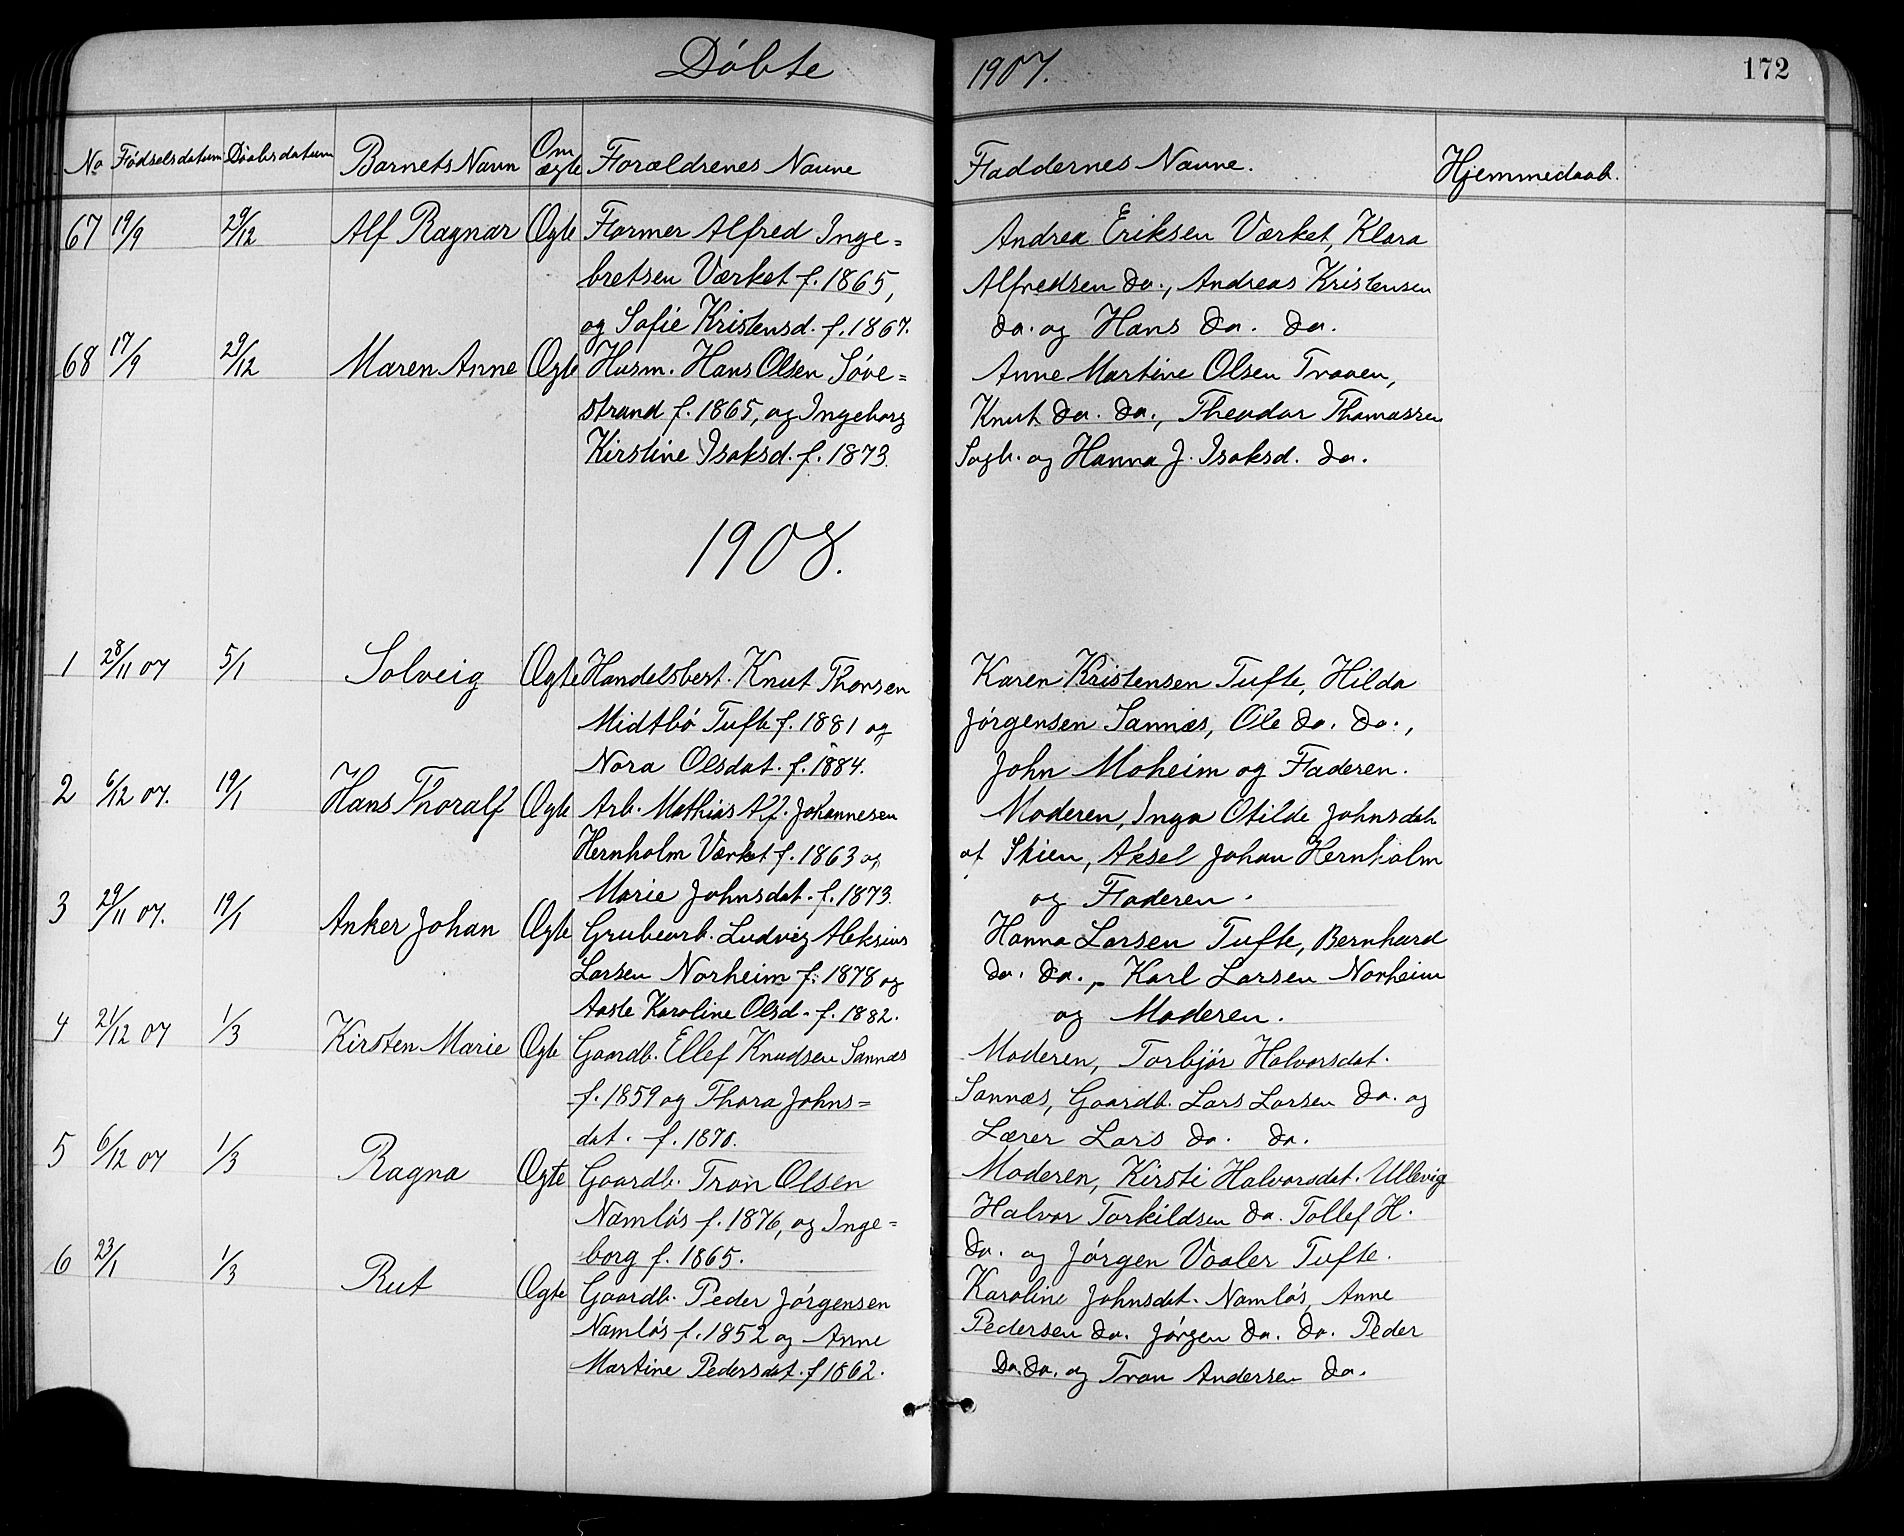 Döbte 1907. 172
No Fødselsdatum Daabsdatum Barnets Navn Om ægte Forældrenes Navne Faddernes Navne. Hjemmedaab.
67 19/9 29/12 Alf Ragnar Ægte Former Alfred Inge= Andrea Eriksen Værket, Klara
bretsen Værket f. 1865, Alfredsen do., Andreas Kristensen
og Sofie Kristensd. f. 1867. do. og Hans do. do.
68 17/9 29/12 Maren Anne Ægte Husm. Hans Olsen Söve= Anne Martine Olsen Traaen,
strand f. 1865, og Ingeborg Knut do. do., Theodor Thomassen
Kirstine Isaksd. f. 1873. og Hanna J. Isaksd. do.
1908.
1 28/11 07 5/1 Solveig Ægte Handelsbest. Knut Thorsen Karen Kristensen Tufte, Hilda
Midtbö Tufte f. 1881 og Jörgensen Sannæs, Ole do. do.,
Nora Olsdat. f. 1884. John Moheim og Faderen.
2 6/12 07. 19/1 Hans Thoralf Ægte Arb. Mathias Alf. Johannesen Moderen, Inga Otilde Johnsdat.
Hernholm Værket f. 1863 og af Skien, Aksel Johan Hernholm
Marie Johnsdat. f. 1873. og Faderen.
3 29/11 07. 19/1 Anker Johan Ægte Grubearb. Ludvig Aleksius Hanna Larsen Tufte, Bernhard
Larsen Norheim f. 1878 og do. do., Karl Larsen Norheim
Aaste Karoline Olsd. f. 1882. og Moderen.
4 21/12 07 1/3 Kirsten Marie Ægte Gaardb. Ellef Knudsen Sannæs Moderen, Torbjör Halvorsdat.
f. 1859 og Thora Johns= Sannæs, Gaardb. Lars Larsen do. og
dat. f. 1870. Lærer Lars do. do.
5 6/12 07 1/3 Ragna Ægte Gaardb. Tron Olsen Moderen, Kirsti Halvorsdat. Ullevig
Namlös f. 1876, og Inge= Halvor Torkildsen do. Tollef H.
borg f. 1865. do. og Jörgen Vaaler Tufte.
6 23/1 1/3 Rut Ægte Gaardb. Peder Jörgensen Karoline Johnsdat. Namlös, Anne
Namlös f. 1852 og Anne Pedersen do. Jörgen do. do. Peder
Martine Pedersdat. f 1862. do. do. og Tron Andersen do.